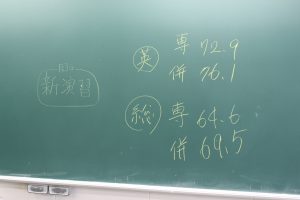 新演習
英 専 72.9
併 76.1
総 専 64.6
併 69.5